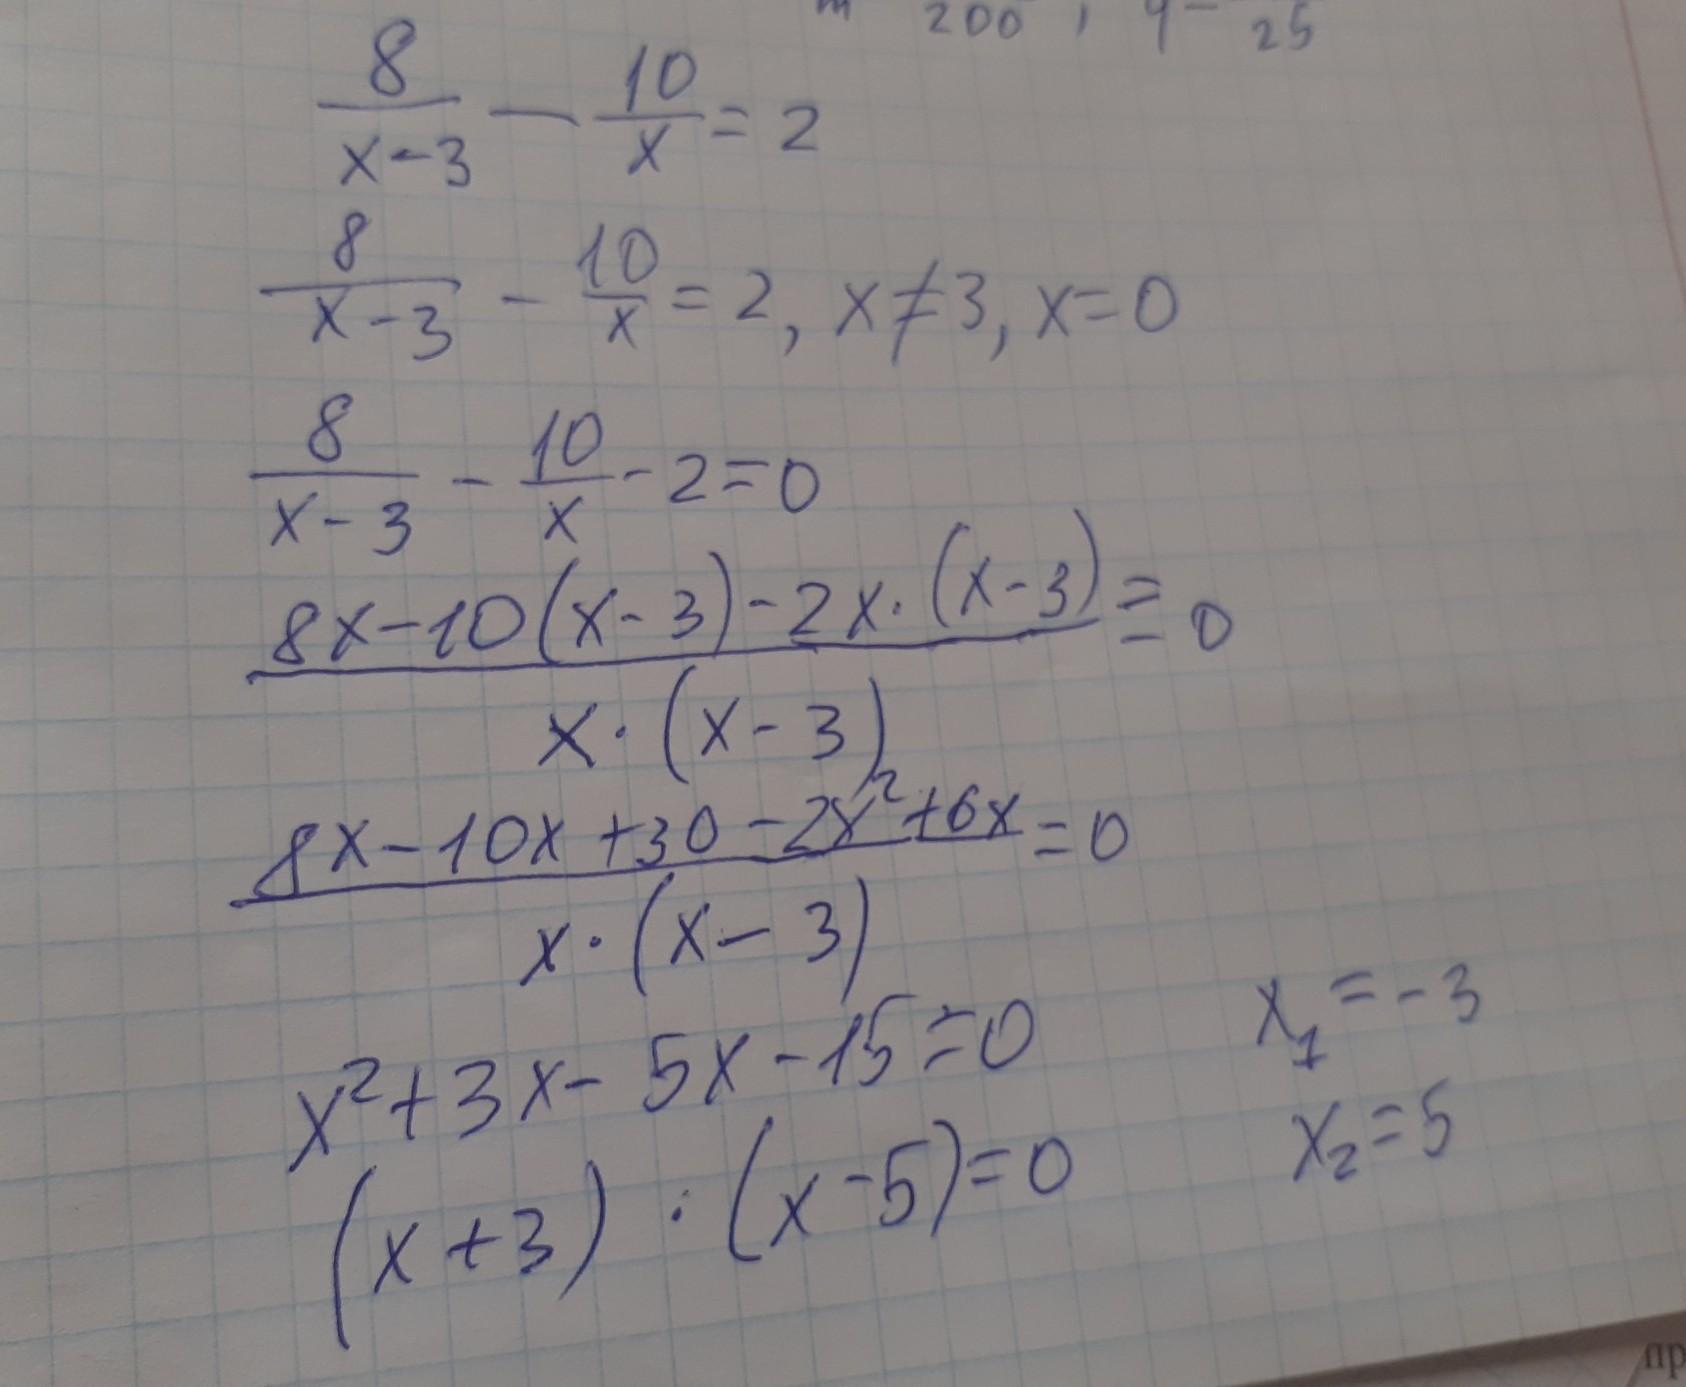 200 , q =
25
8/(x-3) - 10/x = 2
8/(x-3) - 10/x = 2, x≠3, x=0
8/(x-3) - 10/x - 2=0
(8x-10(x-3)-2x·(x-3))/(x·(x-3)) = 0
(8x-10x+30-2x²+6x)/(x·(x-3)) = 0
x²+3x-5x-15=0
x₁=-3
(x+3)·(x-5)=0
x₂=5
пр